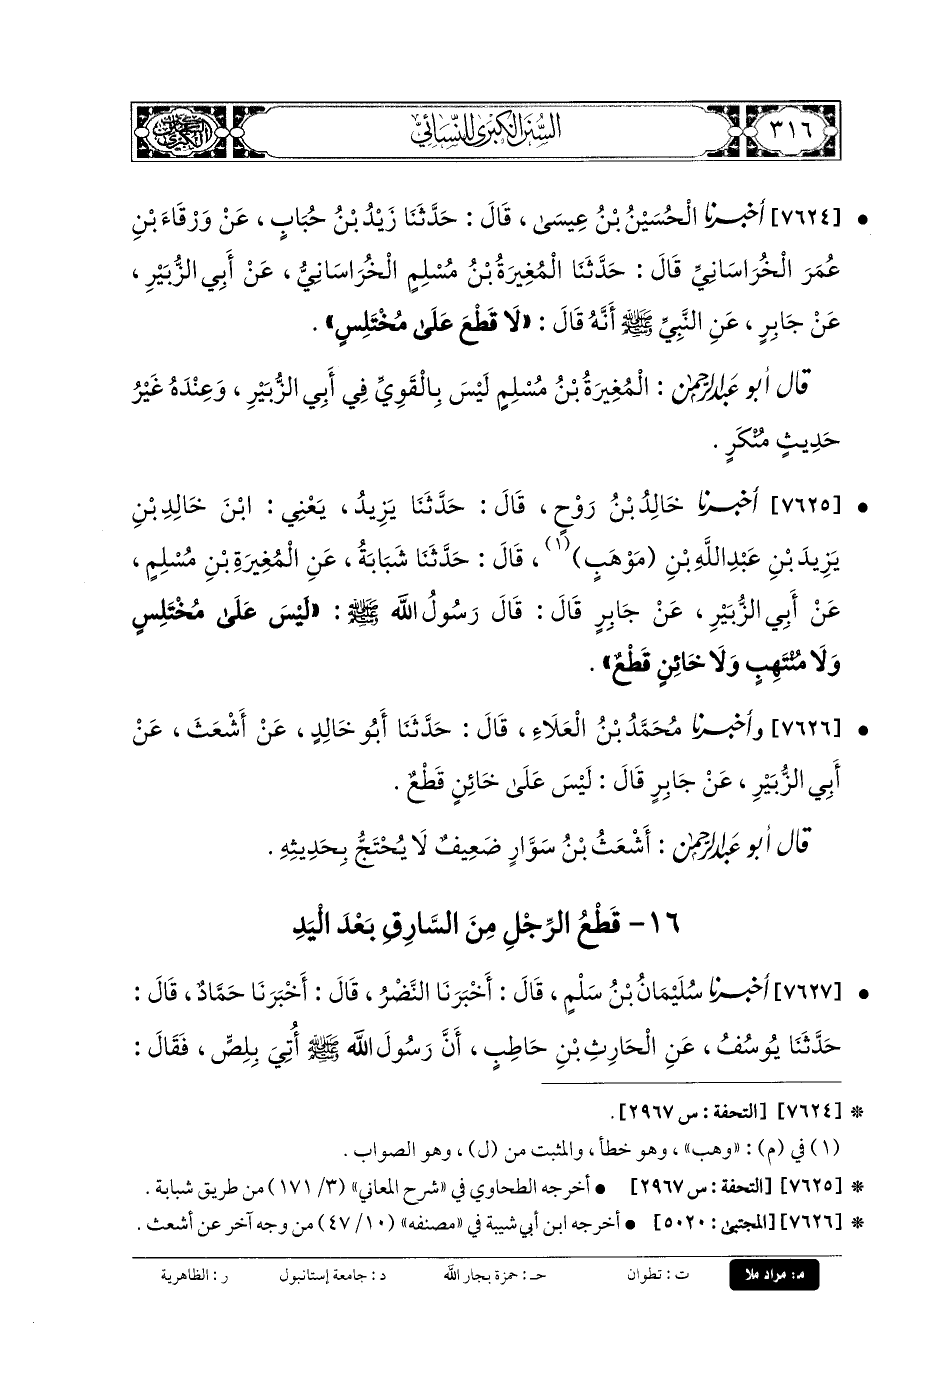 ٣١٦
السُّنَنُ الكُبْرَى لِلنَّسَائِيّ
• [٧٦٢٤] أخبرنا الْحُسَيْنُ بْنُ عِيسَىٰ ، قَالَ : حَدَّثَنَا زَيْدُ بْنُ حُبَابٍ ، عَنْ وَرْقَاءَ بْنِ
عُمَرَ الْخُرَاسَانِيِّ قَالَ : حَدَّثَنَا الْمُغِيرَةُ بْنُ مُسْلِمٍ الْخُرَاسَانِيُّ ، عَنْ أَبِي الزُّبَيْرِ ،
عَنْ جَابِرٍ ، عَنِ النَّبِيِّ ﷺ أَنَّهُ قَالَ : «لَا قَطْعَ عَلَىٰ مُخْتَلِسٍ» .
قال أبو عبدالرحمن : الْمُغِيرَةُ بْنُ مُسْلِمٍ لَيْسَ بِالْقَوِيِّ فِي أَبِي الزُّبَيْرِ ، وَعِنْدَهُ غَيْرُ
حَدِيثٍ مُنْكَرٍ .
• [٧٦٢٥] أخبرنا خَالِدُ بْنُ رَوْحٍ ، قَالَ : حَدَّثَنَا يَزِيدُ ، يَعْنِي : ابْنَ خَالِدِ بْنِ
يَزِيدَ بْنِ عَبْدِاللَّهِ بْنِ (مَوْهَبٍ)(١) ، قَالَ : حَدَّثَنَا شَبَابَةُ ، عَنِ الْمُغِيرَةِ بْنِ مُسْلِمٍ ،
عَنْ أَبِي الزُّبَيْرِ ، عَنْ جَابِرٍ قَالَ : قَالَ رَسُولُ اللَّه ﷺ : «لَيْسَ عَلَىٰ مُخْتَلِسٍ
وَلَا مُنْتَهِبٍ وَلَا خَائِنٍ قَطْعٌ» .
• [٧٦٢٦] وأخبرنا مُحَمَّدُ بْنُ الْعَلَاءِ ، قَالَ : حَدَّثَنَا أَبُو خَالِدٍ ، عَنْ أَشْعَثَ ، عَنْ
أَبِي الزُّبَيْرِ ، عَنْ جَابِرٍ قَالَ : لَيْسَ عَلَىٰ خَائِنٍ قَطْعٌ .
قال أبو عبدالرحمن : أَشْعَثُ بْنُ سَوَّارٍ ضَعِيفٌ لَا يُحْتَجُّ بِحَدِيثِهِ .
١٦- قَطْعُ الرِّجْلِ مِنَ السَّارِقِ بَعْدَ الْيَدِ
• [٧٦٢٧] أخبرنا سُلَيْمَانُ بْنُ سَلْمٍ ، قَالَ : أَخْبَرَنَا النَّضْرُ ، قَالَ : أَخْبَرَنَا حَمَّادٌ ، قَالَ :
حَدَّثَنَا يُوسُفُ ، عَنِ الْحَارِثِ بْنِ حَاطِبٍ ، أَنَّ رَسُولَ اللَّه ﷺ أُتِيَ بِلِصٍّ ، فَقَالَ :
* [٧٦٢٤] [التحفة : س ٢٩٦٧] .
(١) في (م) : «وهب» ، وهو خطأ ، والمثبت من (ل) ، وهو الصواب .
* [٧٦٢٥] [التحفة : س ٢٩٦٧] • أخرجه الطحاوي في «شرح المعاني» (٣/ ١٧١) من طريق شبابة .
* [٧٦٢٦] [المجتبى : ٥٠٢٠] • أخرجه ابن أبي شيبة في «مصنفه» (١٠/ ٤٧) من وجه آخر عن أشعث .
م: مراد ملا ت : تطوان حـ : حمزة بجار اللَّه د : جامعة إستانبول ر : الظاهرية